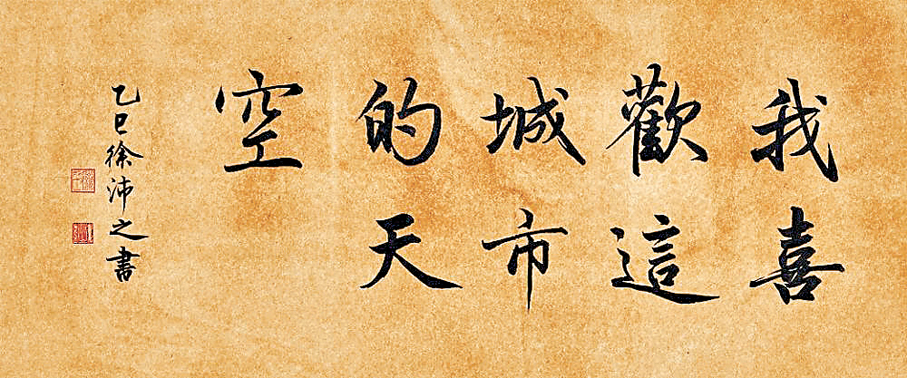 我喜
歡這
城市
的天
空
乙巳徐沛之書